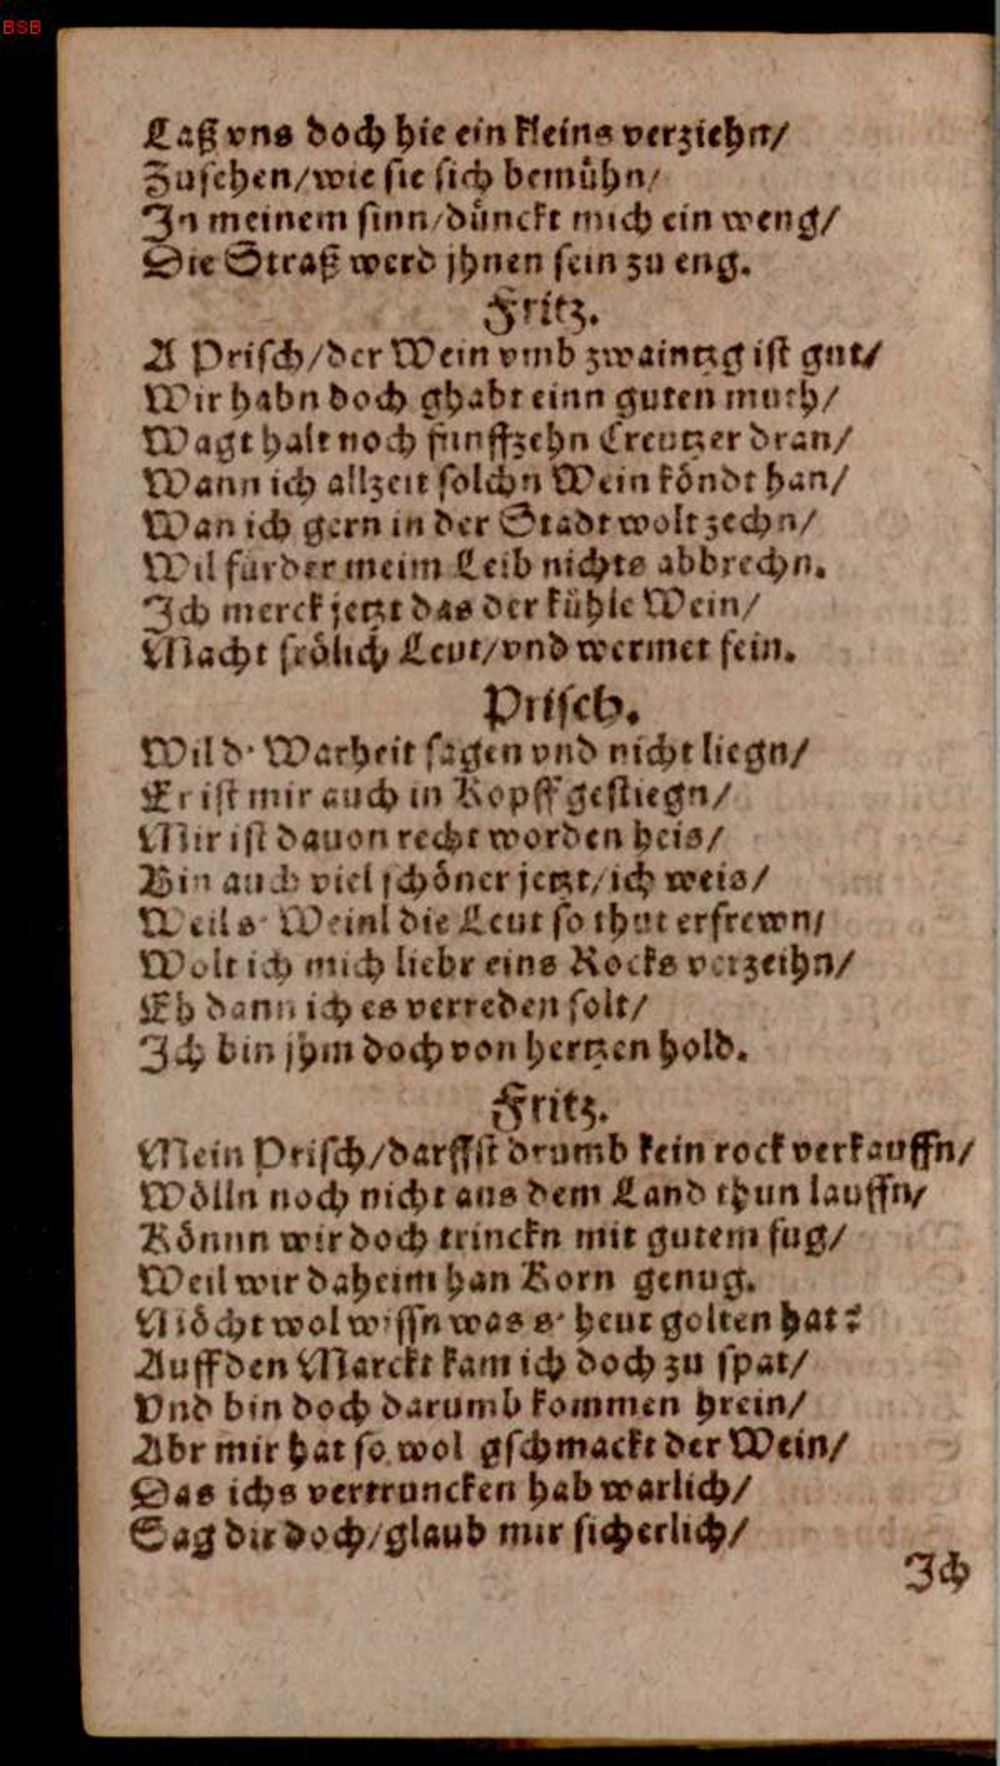 BSB
Laß vns doch hie ein kleins verziehn/
Zusehen/wie sie sich bemühn/
In meinem sinn/dünckt mich ein weng/
Die Straß werd jhnen sein zu eng.
Fritz.
A Prisch/der Wein vmb zwaintzg ist gut/
Wir habn doch ghabt einn guten muth/
Wagt halt noch funffzehn Creutzer dran/
Wann ich allzeit solchn Wein köndt han/
Wan ich gern in der Stadt wolt zechn/
Wil furder meim Leib nichts abbrechn.
Ich merck jetzt das der kühle Wein/
Macht frölich Leut/vnd wermet fein.
Prisch.
Wil d' Warheit sagen vnd nicht liegn/
Er ist mir auch in Kopff gestiegn/
Mir ist dauon recht worden heis/
Bin auch viel schöner jetzt/ich weis/
Weil s' Weinl die Leut so thut erfrewn/
Wolt ich mich liebr eins Rocks verzeihn/
Eh dann ich es verreden solt/
Ich bin jhm doch von hertzen hold.
Fritz.
Mein Prisch/darffst drumb kein rock verkauffn/
Wölln noch nicht aus dem Land thun lauffn/
Könnn wir doch trinckn mit gutem fug/
Weil wir daheim han Korn genug.
Möcht wol wissn was s' heut golten hat?
Auff den Marckt kam ich doch zu spat/
Vnd bin doch darumb kommen hrein/
Abr mir hat so wol gschmackt der Wein/
Das ichs vertruncken hab warlich/
Sag dir doch/glaub mir sicherlich/
Ich